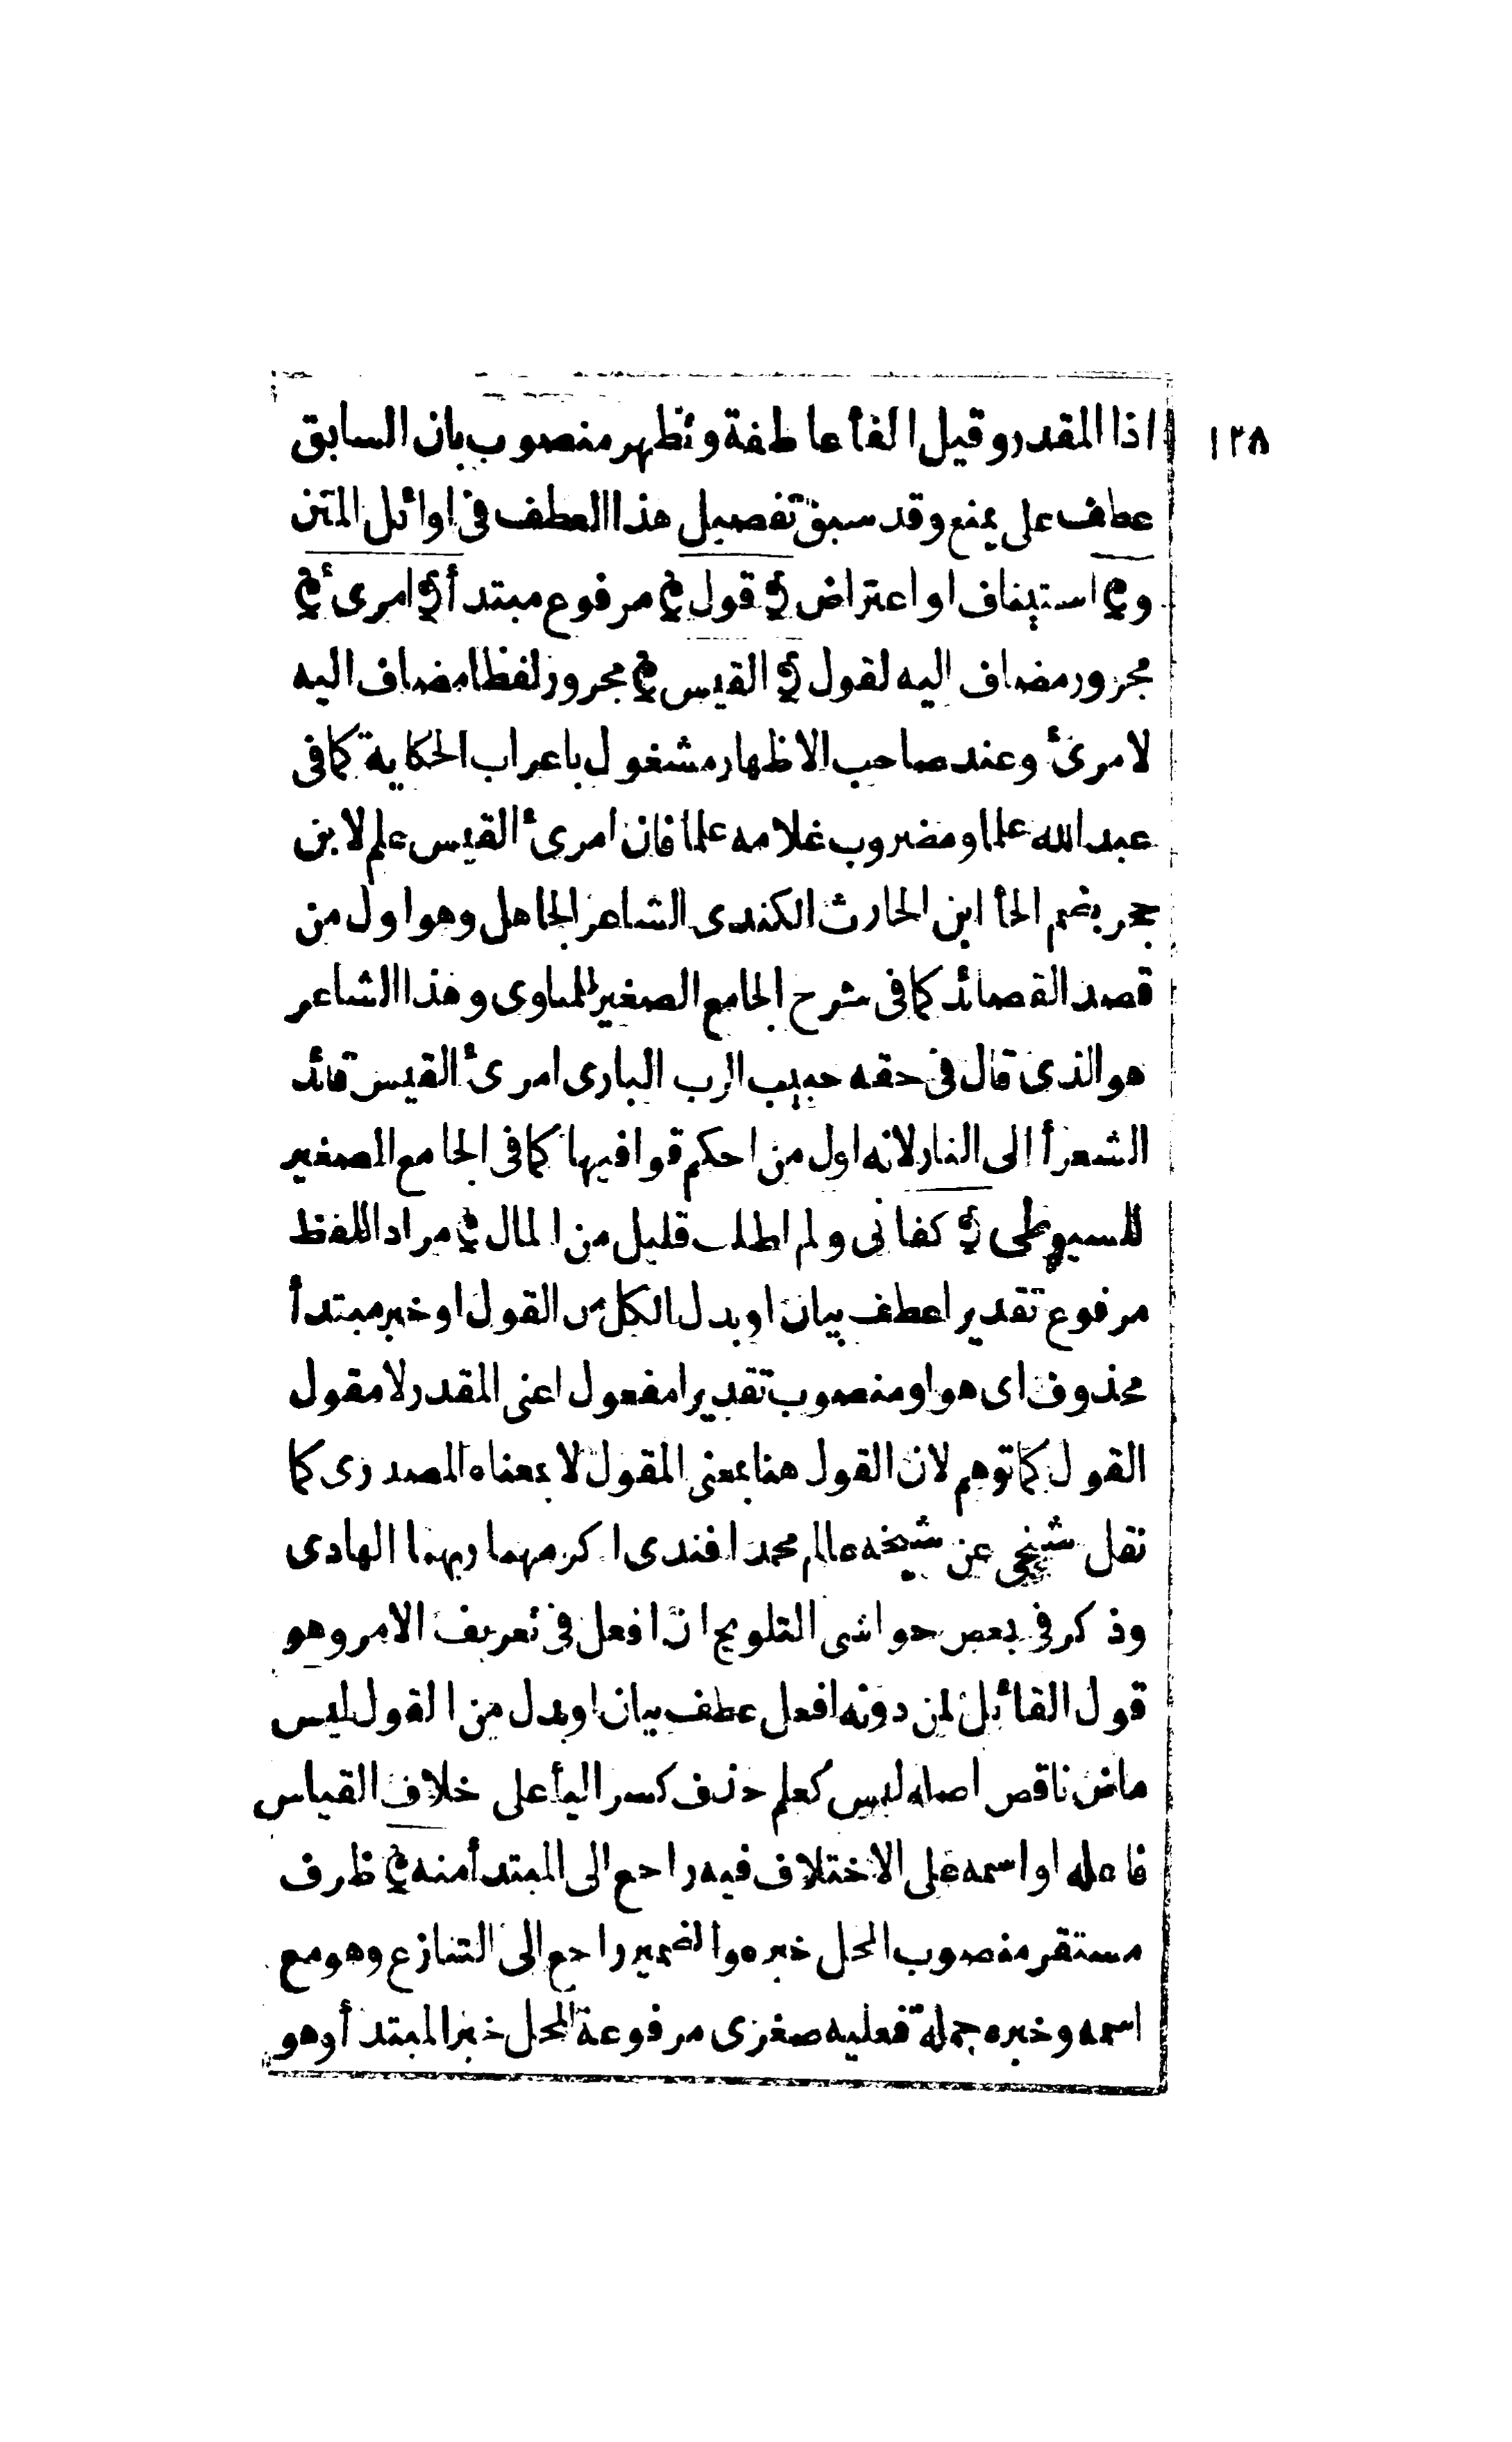 ١٢٨
اذا المقدر وقيل الفأ عاطفة وتظهر منصوب بان السابق
عطف على يمنع وقد سبق تفصيل هذا العطف فى اوائل المتن
و استيناف او اعتراض قول مرفوع مبتدأ امرئ
مجرور مضاف اليه لقول القيس مجرور لفظا مضاف اليه
لامرئ وعند صاحب الاظهار مشغول باعراب الحكاية كما فى
عبد الله علما ومضروب غلامه علما فان امرئ القيس علم لابن
حجر بضم الحأ ابن الحارث الكندى الشاعر الجاهل وهو اول من
قصد القصائد كما فى شرح الجامع الصغير للمناوى وهذا الشاعر
هو الذى قال فى حقه حبيب الرب البارى امرئ القيس قائد
الشعرأ الى النار لانه اول من احكم قوافيها كما فى الجامع الصغير
للسيوطى كفانى ولم اطلب قليل من المال مراد اللفظ
مرفوع تقديرا عطف بيان او بدل الكل من القول او خبر مبتدأ
محذوف اى هو او منصوب تقديرا مفعول اعنى المقدر لا مقول
القول كما توهم لان القول هنا بمعنى المقول لا بمعناه المصدرى كما
نقل شيخى عن شيخه عالم محمد افندى اكرمهما ربهما الهادى
وذكر فى بعض حواشى التلويح ان افعل فى تعريف الامر وهو
قول القائل لمن دونه افعل عطف بيان او بدل من القول ليس
ماض ناقص اصله ليس كعلم حذف كسر اليأ على خلاف القياس
فاعله او اسمه على الاختلاف فيه راجع الى المبتدأ منه ظرف
مستقر منصوب المحل خبره والضمير راجع الى التنازع وهو مع
اسمه وخبره جملة فعليه صغرى مرفوعة المحل خبر المبتدأ وهو